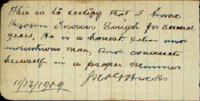 This is to certify that I have
known Singh for several
years, He is a honest, sober and
industrious man, and conducts
himself in a proper manner
11/13/1909